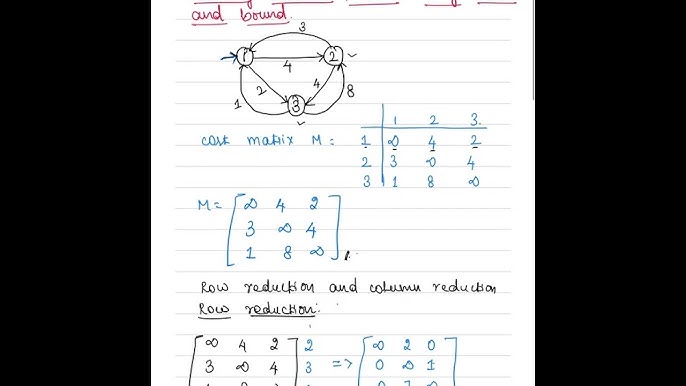 and bound.
3
1 2
4
2 4
1 8
3
1 2 3.
cost matrix M = 1 ∞ 4 2
2 3 ∞ 4
3 1 8 ∞
M = ∞ 4 2
3 ∞ 4
1 8 ∞
Row reduction and column reduction
Row reduction:
∞ 4 2 2 ∞ 2 0
3 ∞ 4 3 => 0 ∞ 1